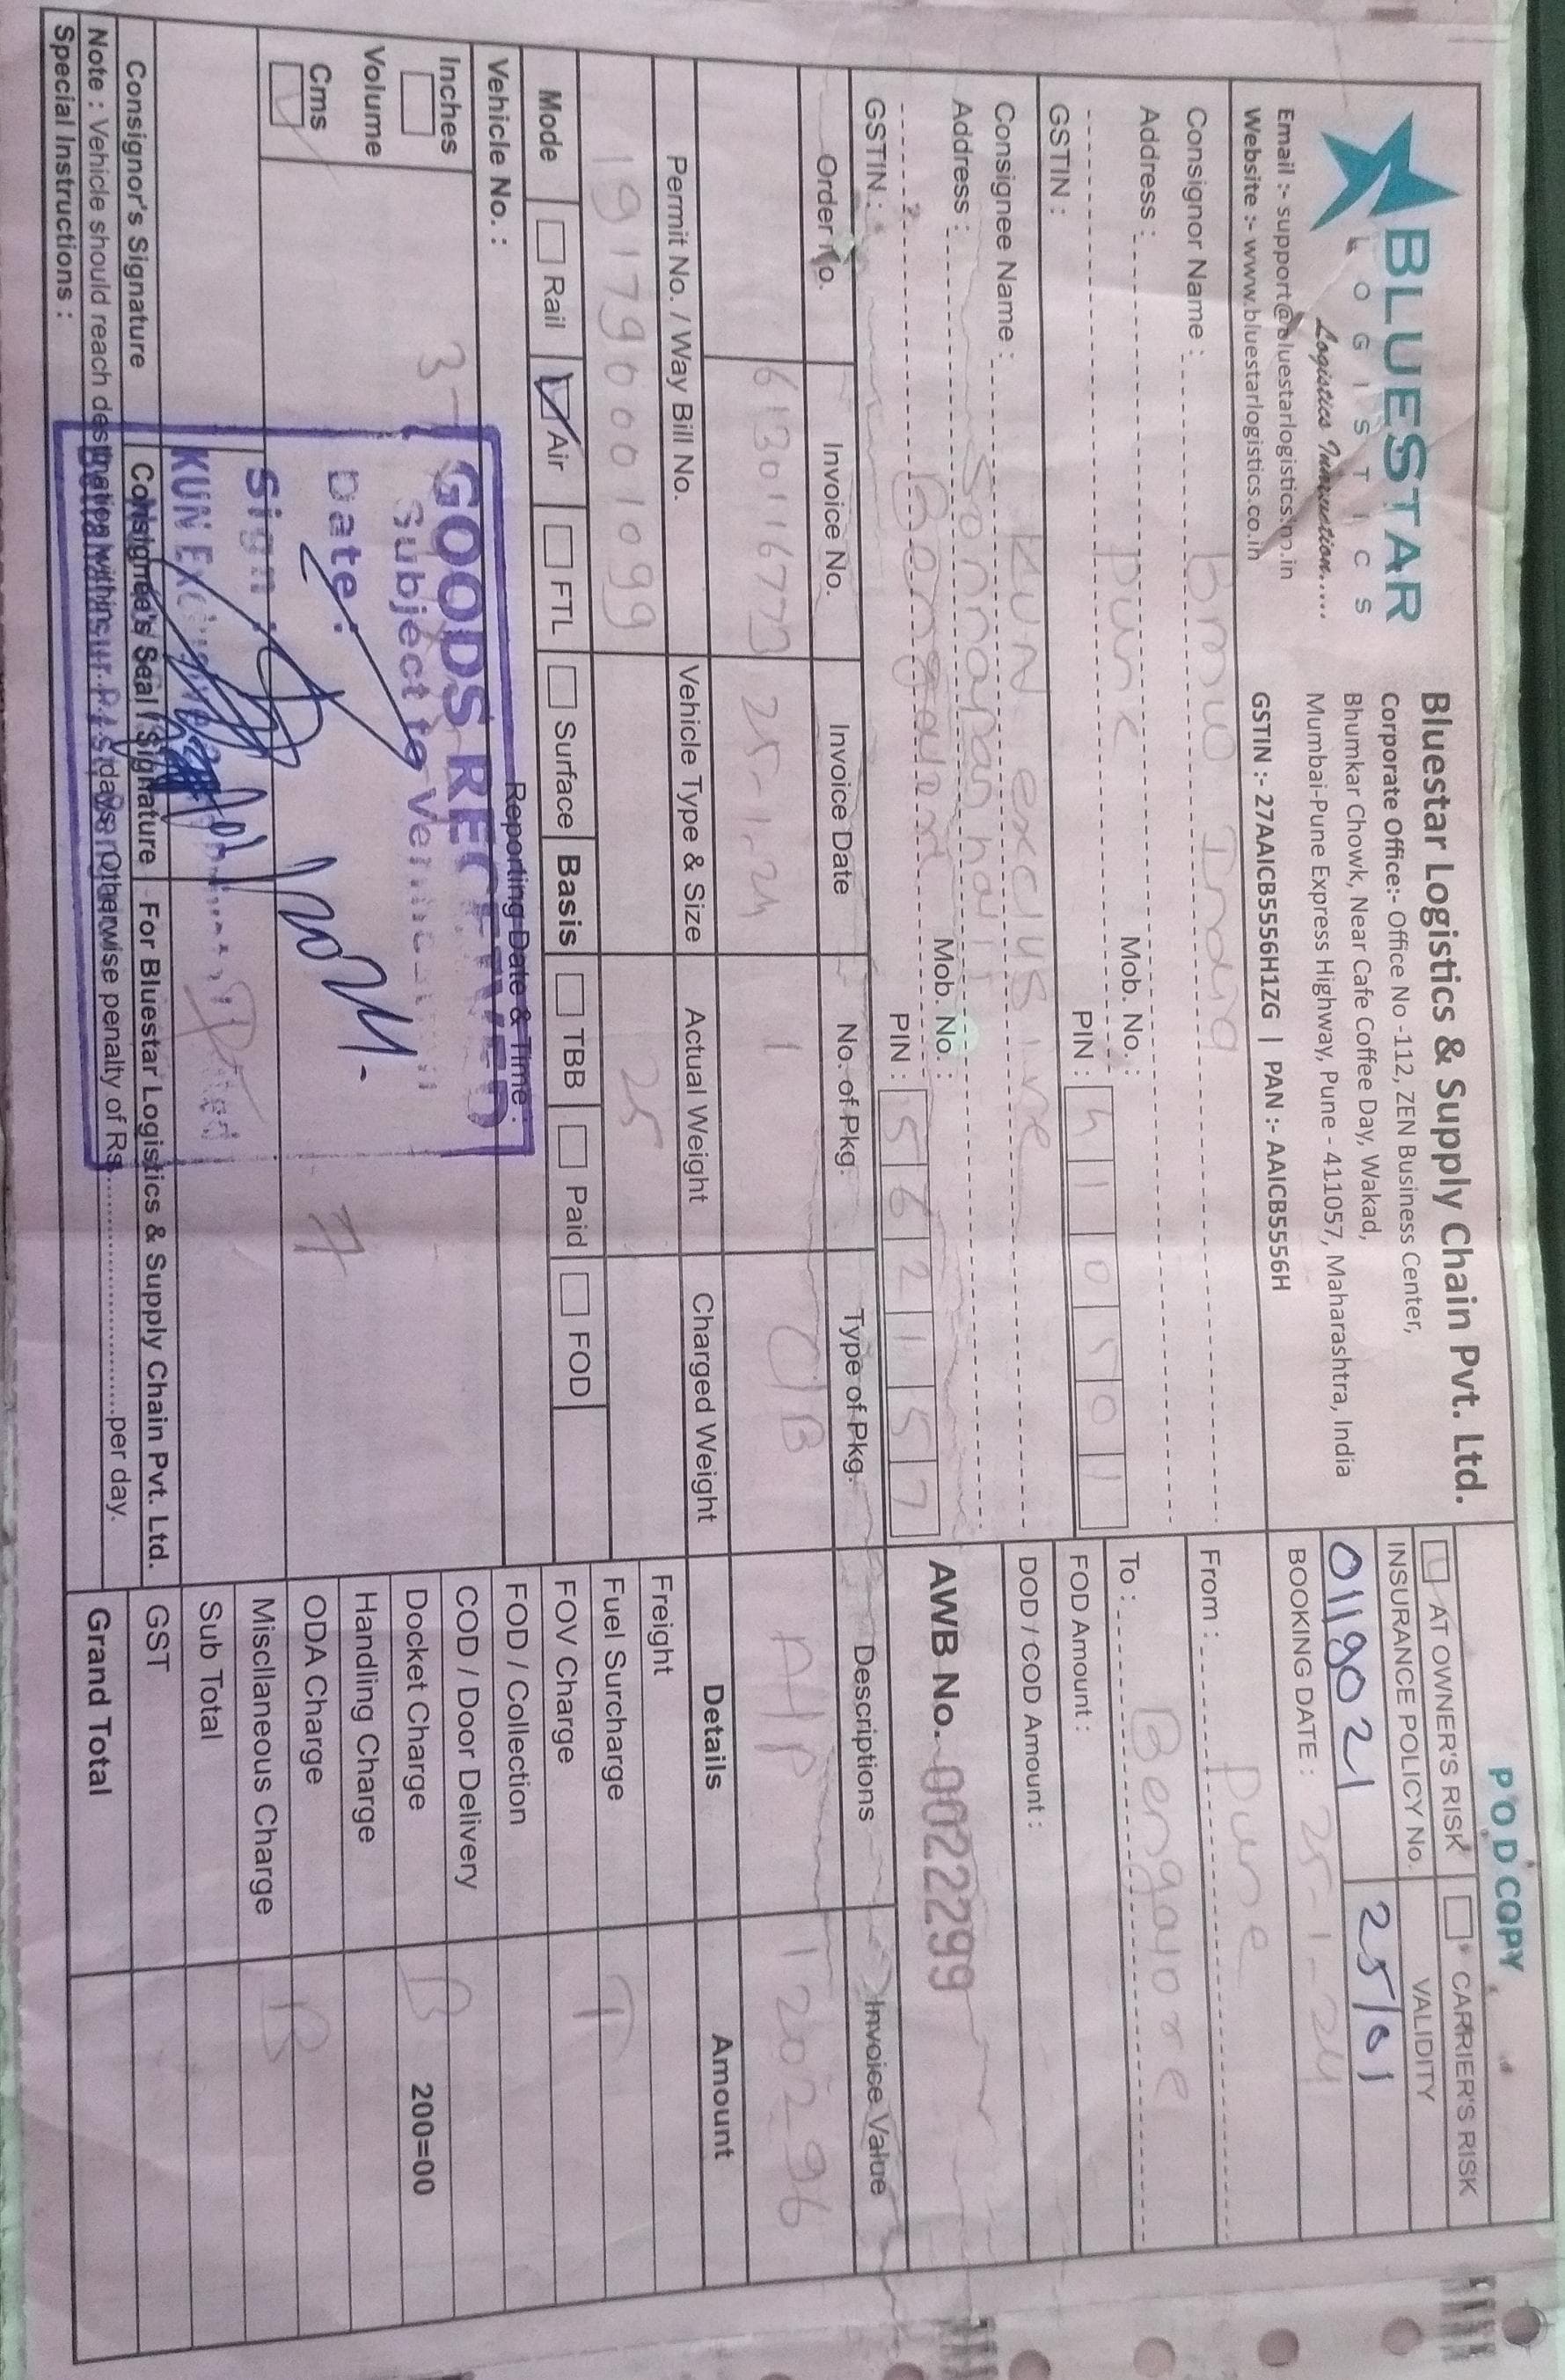 POD COPY
BLUESTAR
LOGISTICS
Logistics
Email :- support@bluestarlogistics.co.in
Website :- www.bluestarlogistics.co.in
Bluestar Logistics & Supply Chain Pvt. Ltd.
Corporate Office:- Office No -112, ZEN Business Center,
Bhumkar Chowk, Near Cafe Coffee Day, Wakad,
Mumbai-Pune Express Highway, Pune - 411057, Maharashtra, India
GSTIN :- 27AAICB5556H1ZG | PAN :- AAICB5556H
AT OWNER'S RISK CARRIER'S RISK
INSURANCE POLICY No. VALIDITY
0119021 25/01
BOOKING DATE : 25-1-24
Consignor Name : BMW India
Address :
Pune Mob. No. :
PIN : 410501
GSTIN :
From : Pune
To : Bengalore
FOD Amount :
DOD / COD Amount :
Consignee Name : KUN exclusive
Address :
Mob. No. :
PIN : 562157
GSTIN :
AWB No. 0022299
Order No. Invoice No. Invoice Date No. of Pkg. Type of Pkg. Descriptions Invoice Value
6130116773 25-1-24 1 C/B A/P 120296
Permit No. / Way Bill No. Vehicle Type & Size Actual Weight Charged Weight
191790001099 25
Mode Rail Air FTL Surface Basis TBB Paid FOD
Vehicle No. : Reporting Date & Time :
Inches
Volume
Cms
GOODS RECEIVED
Subject to Verification
Date :
Sign :
KUN Exclusive
Details Amount
Freight
Fuel Surcharge T
FOV Charge
FOD / Collection
COD / Door Delivery
Docket Charge B 200=00
Handling Charge
ODA Charge B
Miscllaneous Charge
Sub Total
GST
Grand Total
Consignor's Signature Consignee's Seal / Signature For Bluestar Logistics & Supply Chain Pvt. Ltd.
Note : Vehicle should reach destination within............days. Otherwise penalty of Rs..............................per day.
Special Instructions :